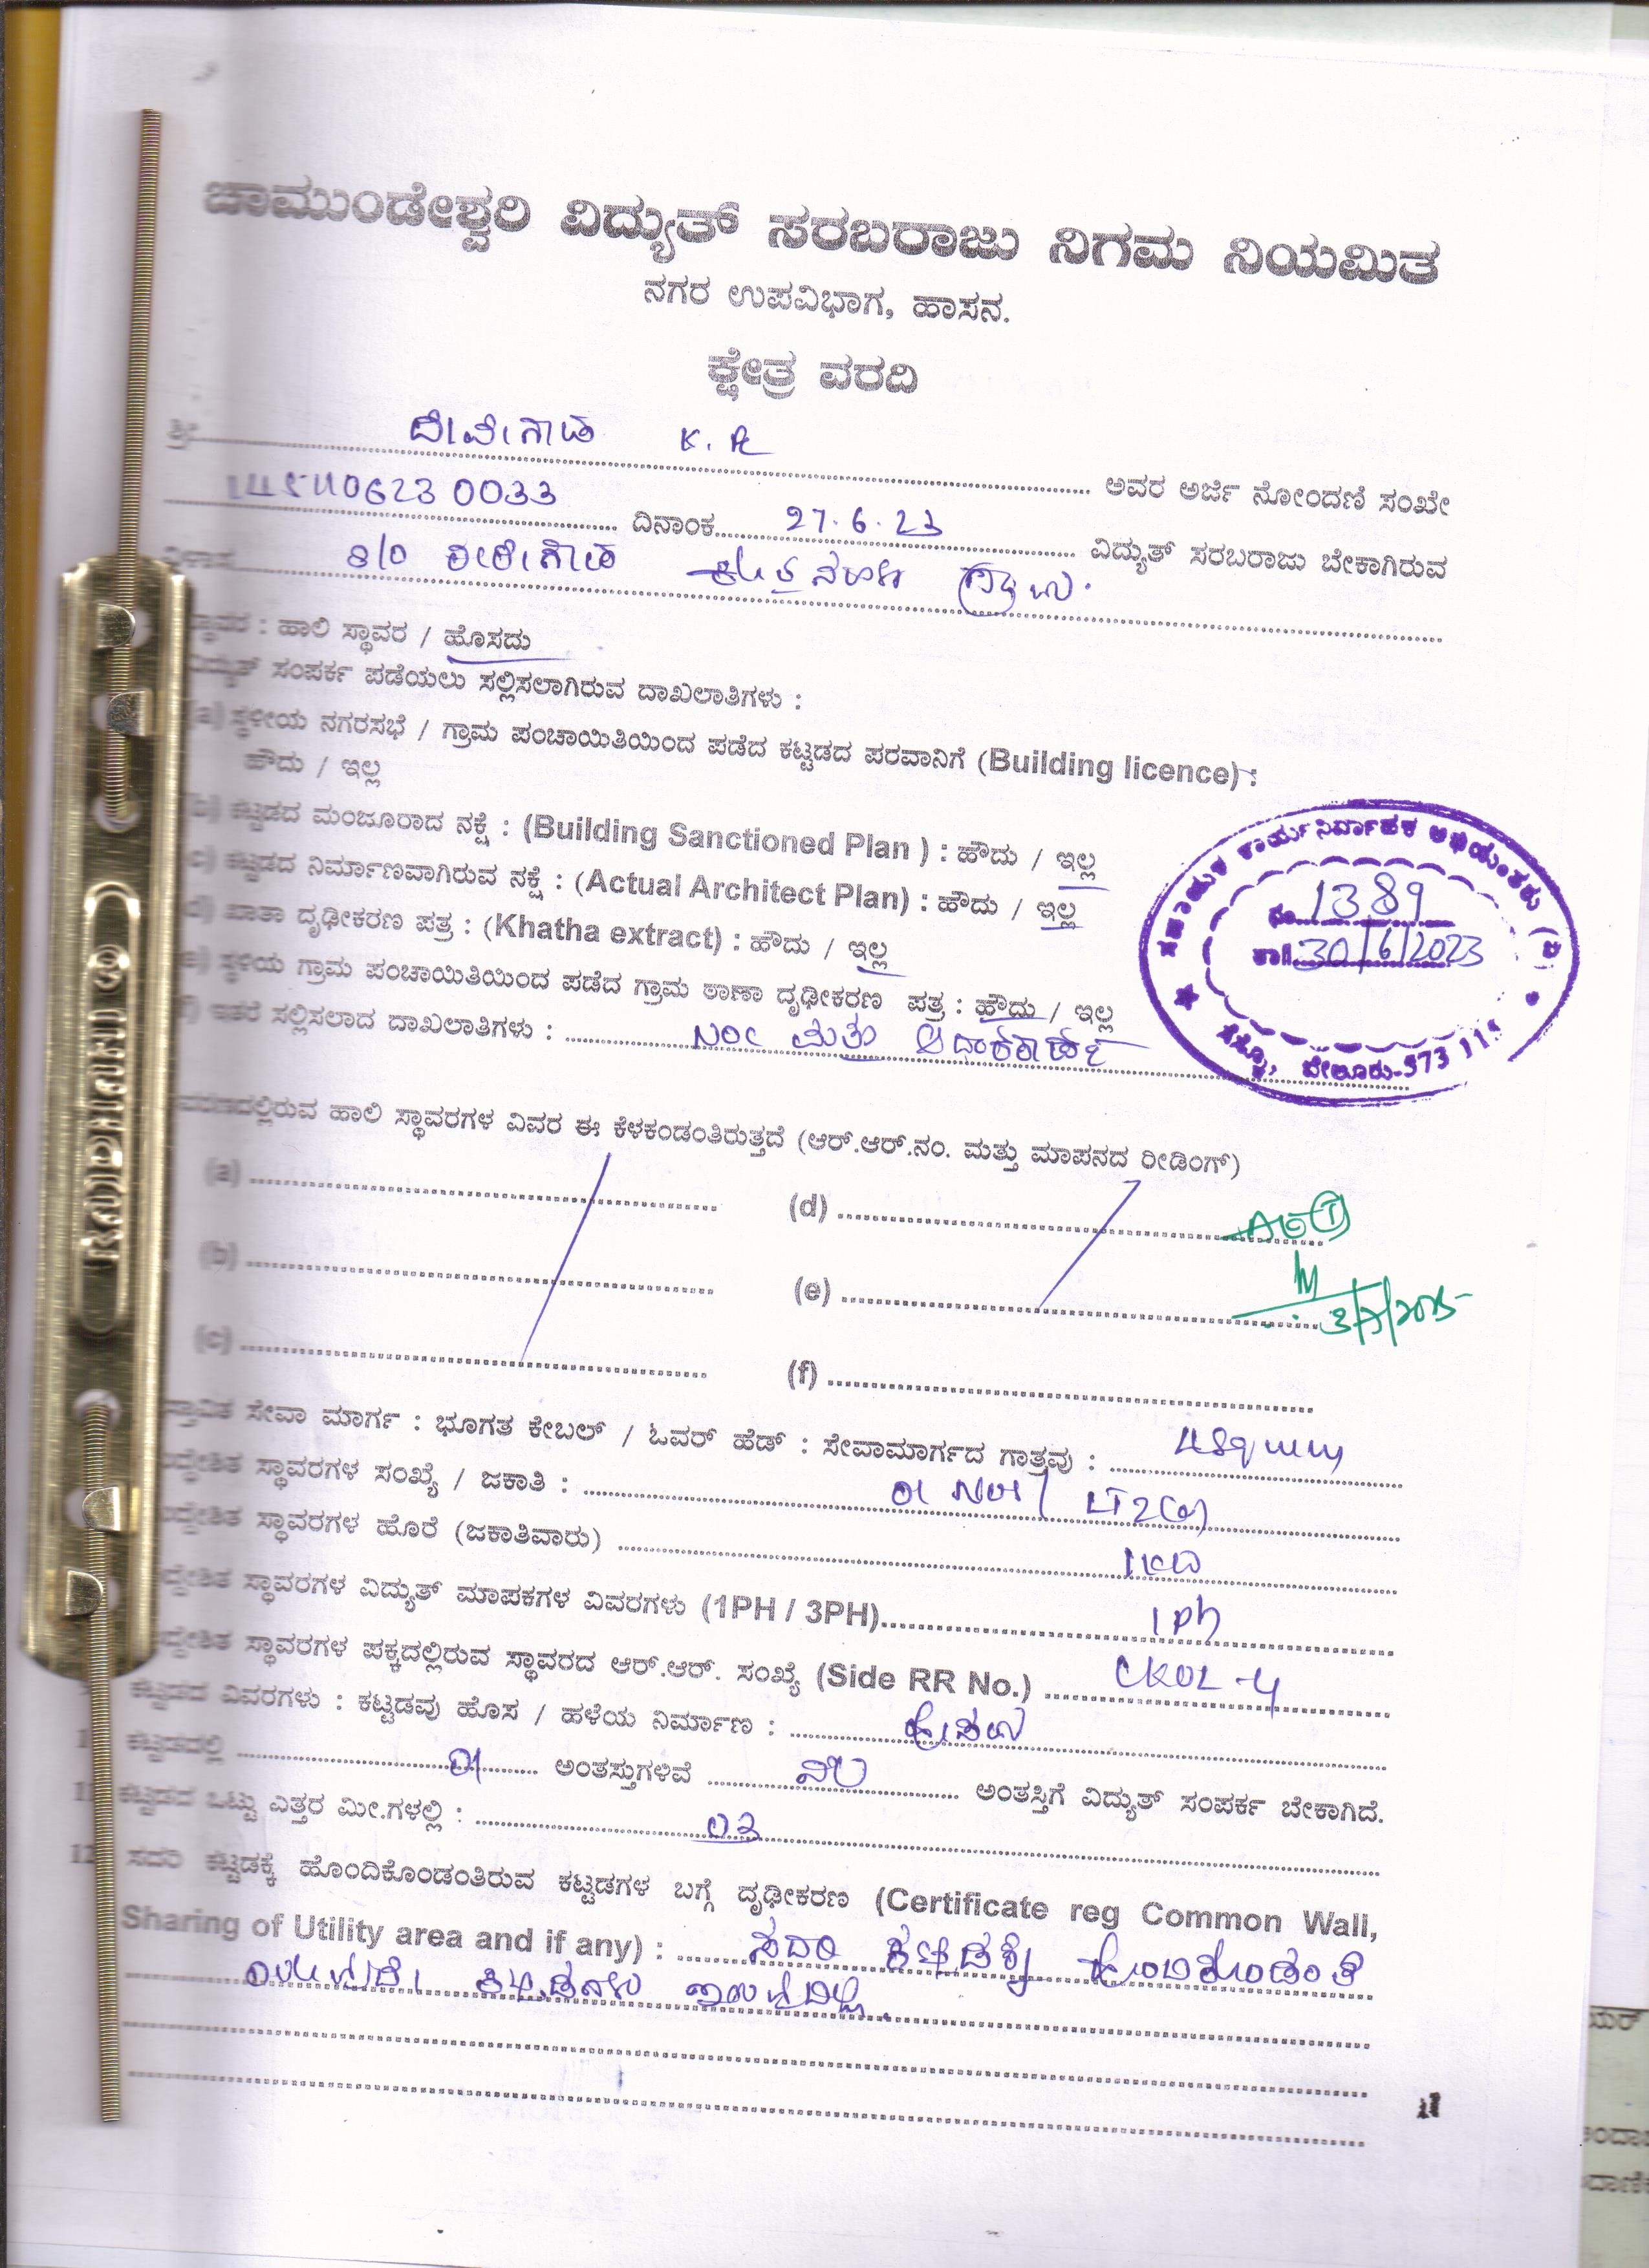 ಚಾಮುಂಡೇಶ್ವರಿ ವಿದ್ಯುತ್ ಸರಬರಾಜು ನಿಗಮ ನಿಯಮಿತ
ನಗರ ಉಪವಿಭಾಗ, ಹಾಸನ.
ಕ್ಷೇತ್ರ ವರದಿ
ಶ್ರೀ ದೇವೇಗೌಡ K. R
ಅವರ ಅರ್ಜಿ ನೋಂದಣಿ ಸಂಖೇ
0033 ದಿನಾಂಕ 27.6.23 ವಿದ್ಯುತ್ ಸರಬರಾಜು ಬೇಕಾಗಿರುವ
S/O ಗ್ರಾಮ.
ಸ್ಥಾವರ : ಹಾಲಿ ಸ್ಥಾವರ / ಹೊಸದು
ವಿದ್ಯುತ್ ಸಂಪರ್ಕ ಪಡೆಯಲು ಸಲ್ಲಿಸಲಾಗಿರುವ ದಾಖಲಾತಿಗಳು :
(a) ಸ್ಥಳೀಯ ನಗರಸಭೆ / ಗ್ರಾಮ ಪಂಚಾಯಿತಿಯಿಂದ ಪಡೆದ ಕಟ್ಟಡದ ಪರವಾನಿಗೆ (Building licence) :
ಹೌದು / ಇಲ್ಲ
(b) ಕಟ್ಟಡದ ಮಂಜೂರಾದ ನಕ್ಷೆ : (Building Sanctioned Plan ) : ಹೌದು / ಇಲ್ಲ
(c) ಕಟ್ಟಡದ ನಿರ್ಮಾಣವಾಗಿರುವ ನಕ್ಷೆ : (Actual Architect Plan) : ಹೌದು / ಇಲ್ಲ
(d) ಖಾತಾ ದೃಢೀಕರಣ ಪತ್ರ : (Khatha extract) : ಹೌದು / ಇಲ್ಲ
(e) ಸ್ಥಳಿಯ ಗ್ರಾಮ ಪಂಚಾಯಿತಿಯಿಂದ ಪಡೆದ ಗ್ರಾಮ ಠಾಣಾ ದೃಢೀಕರಣ ಪತ್ರ : ಹೌದು / ಇಲ್ಲ
(f) ಇತರೆ ಸಲ್ಲಿಸಲಾದ ದಾಖಲಾತಿಗಳು : NOC ಮತ್ತು ಆಧಾರಕಾರ್ಡ್
ಸಹಾಯಕ ಕಾರ್ಯನಿರ್ವಾಹಕ ಅಭಿಯಂತರರು (ವಿ
ನಂ. 1389
ತಾ|| 30/6/2023
ಬೇಲೂರು-573 11
ಆವರಣದಲ್ಲಿರುವ ಹಾಲಿ ಸ್ಥಾವರಗಳ ವಿವರ ಈ ಕೆಳಕಂಡಂತಿರುತ್ತದೆ (ಆರ್.ಆರ್.ನಂ. ಮತ್ತು ಮಾಪನದ ರೀಡಿಂಗ್)
(a) (d)
(b) (e)
(c) (f)
ಸೇವಾ ಮಾರ್ಗ : ಭೂಗತ ಕೇಬಲ್ / ಓವರ್ ಹೆಡ್ : ಸೇವಾಮಾರ್ಗದ ಗಾತ್ರವು : 4Sqmm
ಉದ್ದೇಶಿತ ಸ್ಥಾವರಗಳ ಸಂಖ್ಯೆ / ಜಕಾತಿ : 01 Nos / LT2(a)
ಉದ್ದೇಶಿತ ಸ್ಥಾವರಗಳ ಹೊರೆ (ಜಕಾತಿವಾರು) 1KW
ಉದ್ದೇಶಿತ ಸ್ಥಾವರಗಳ ವಿದ್ಯುತ್ ಮಾಪಕಗಳ ವಿವರಗಳು (1PH / 3PH) 1 Ph
ಉದ್ದೇಶಿತ ಸ್ಥಾವರಗಳ ಪಕ್ಕದಲ್ಲಿರುವ ಸ್ಥಾವರದ ಆರ್.ಆರ್. ಸಂಖ್ಯೆ (Side RR No.) CKOL-4
ಕಟ್ಟಡದ ವಿವರಗಳು : ಕಟ್ಟಡವು ಹೊಸ / ಹಳೆಯ ನಿರ್ಮಾಣ : ಹೊಸದು
ಕಟ್ಟಡದಲ್ಲಿ 01 ಅಂತಸ್ತುಗಳಿವೆ ನೆಲ ಅಂತಸ್ತಿಗೆ ವಿದ್ಯುತ್ ಸಂಪರ್ಕ ಬೇಕಾಗಿದೆ.
11 ಕಟ್ಟಡದ ಒಟ್ಟು ಎತ್ತರ ಮೀ.ಗಳಲ್ಲಿ : 03
12 ಸದರಿ ಕಟ್ಟಡಕ್ಕೆ ಹೊಂದಿಕೊಂಡಂತಿರುವ ಕಟ್ಟಡಗಳ ಬಗ್ಗೆ ದೃಢೀಕರಣ (Certificate reg Common Wall,
Sharing of Utility area and if any) : ಸದರಿ ಕಟ್ಟಡಕ್ಕೆ ಹೊಂದಿಕೊಂಡಂತೆ
ಯಾವುದೇ ಕಟ್ಟಡಗಳು ಇರುವುದಿಲ್ಲ.